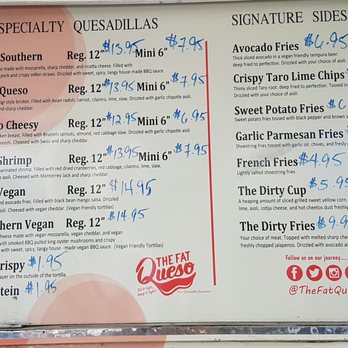 SPECIALTY QUESADILLAS
Southern Reg. 12" $13.95 Mini 6" $7.95
made with mozzarella, sharp cheddar, and ricotta cheese. Filled with
pork and crispy onion straws. Drizzled with sweet, spicy, tangy house made BBQ sauce
Queso Reg. 12" $13.95 Mini 6" $7.95
style brisket. Filled with Asian radish, carrot, cilantro, lime, slaw. Drizzled with garlic chipotle aioli.
sharp cheddar
Cheesy Reg. 12" $12.95 Mini 6" $6.95
chicken. Filled with Brussel's sprouts, almond, red cabbage slaw. Drizzled with garlic chipotle aioli.
Swiss and sharp cheddar
Shrimp Reg. 12" $13.95 Mini 6" $7.95
marinated shrimp. Filled with red dried cranberries, red cabbage, cilantro, lime, slaw.
aioli. Cheesed with Monterey Jack and sharp cheddar
Vegan Reg. 12" $14.95
avocado fries. Filled with black bean mango salsa. Drizzled
aioli. Cheesed with vegan cheddar. (Vegan friendly tortillas)
hern Vegan Reg. 12" $14.95
cheese made with vegan mozzarella, vegan cheddar, and vegan
with smoked BBQ pulled king oyster mushrooms and crispy
with sweet, spicy, tangy house - made vegan BBQ sauce. (Vegan Friendly Tortillas)
rispy $1.95
layer on the outside of the tortilla.
tein $1.95
THE FAT
Queso
SIGNATURE SIDES
Avocado Fries $6.95
Thick sliced avocado in a vegan friendly tempura beer
deep fried to perfection. Drizzled with your choice of aioli.
Crispy Taro Lime Chips
Thinly sliced Taro root: deep fried to perfection. Tossed
Drizzled with your choice of aioli.
Sweet Potato Fries $6
Sweet potato fries tossed with black pepper and brown
Garlic Parmesan Fries
Shoestring fries tossed with garlic, oil, chives, and fresh
French Fries $4.95
Lightly salted shoestring fries
The Dirty Cup $5.95
A heaping amount of sliced grilled sweet yellow corn,
lime, aioli, cotija cheese, and hot cheetos dust
The Dirty Fries $9.9
Your choice of meat. Topped with melted sharp
freshly chopped jalapenos. Drizzled with avocado
follow us on our journey...
@TheFatQue